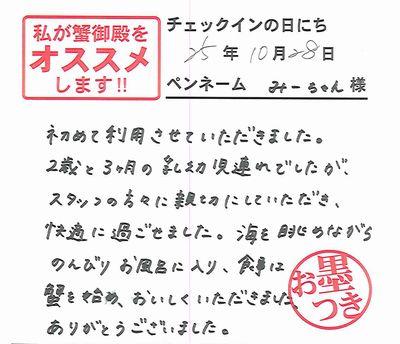 私が蟹御殿を
オススメ
します!!
チェックインの日にち
25年10月28日
ペンネーム みーちゃん 様
初めて利用させていただきました。
2歳と3ヶ月の乳幼児連れでしたが、
スタッフの方々に親切にしていただき、
快適に過ごせました。海を眺めながら
のんびりお風呂に入り、食事は
蟹を始め、おいしくいただきました。
ありがとうございました。
お墨
つき